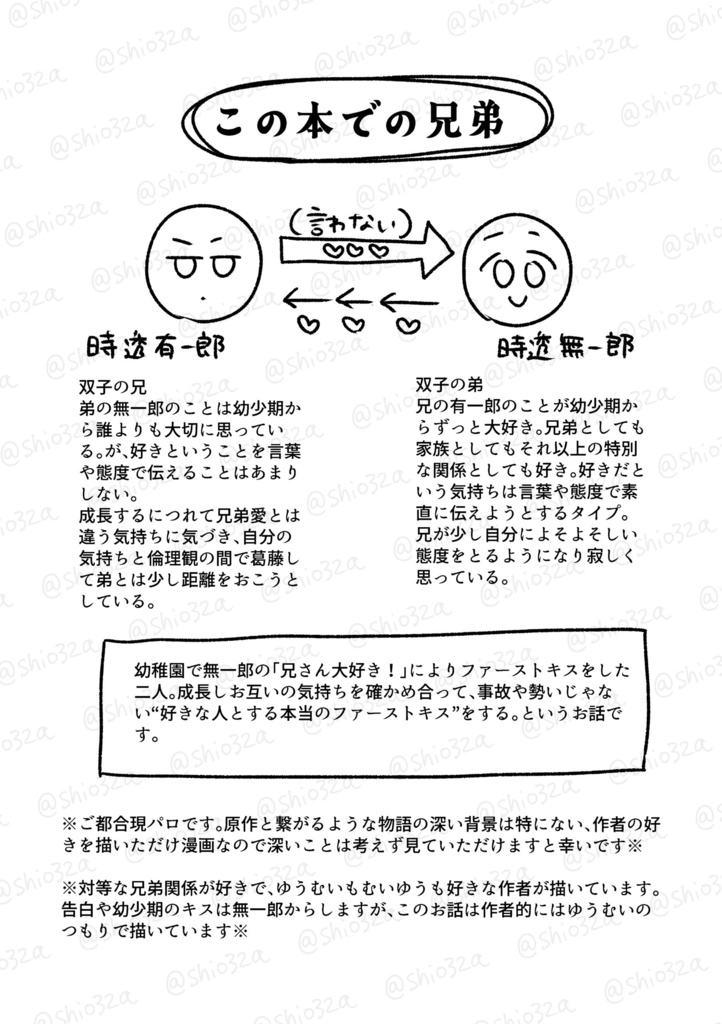 この本での兄弟
(言わない)
時透有一郎
双子の兄
弟の無一郎のことは幼少期か
ら誰よりも大切に思ってい
る。が、好きということを言葉
や態度で伝えることはあまり
しない。
成長するにつれて兄弟愛とは
違う気持ちに気づき、自分の
気持ちと倫理観の間で葛藤し
て弟とは少し距離をおこうと
している。
時透無一郎
双子の弟
兄の有一郎のことが幼少期か
らずっと大好き。兄弟としても
家族としてもそれ以上の特別
な関係としても好き。好きだと
いう気持ちは言葉や態度で素
直に伝えようとするタイプ。
兄が少し自分によそよそしい
態度をとるようになり寂しく
思っている。
幼稚園で無一郎の「兄さん大好き！」によりファーストキスをした
二人。成長しお互いの気持ちを確かめ合って、事故や勢いじゃな
い“好きな人とする本当のファーストキス”をする。というお話で
す。
※ご都合現パロです。原作と繋がるような物語の深い背景は特にない、作者の好
きを描いただけ漫画なので深いことは考えず見ていただけますと幸いです※
※対等な兄弟関係が好きで、ゆうむいもむいゆうも好きな作者が描いています。
告白や幼少期のキスは無一郎からしますが、このお話は作者的にはゆうむいの
つもりで描いています※
@shio32a